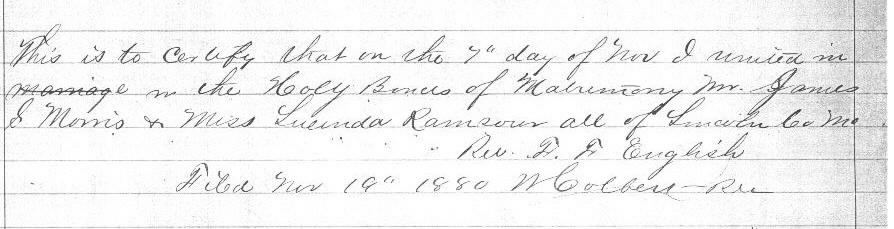 This is to Certify that on the 7" day of Nov I united in
marriage in the Holy Bonds of Matrimony Mr. James
I Morris & Miss Lucinda Ramsour all of Lincoln Co Mo
Rev. F. F English
Filed Nov 19" 1880 W Colbert Rec